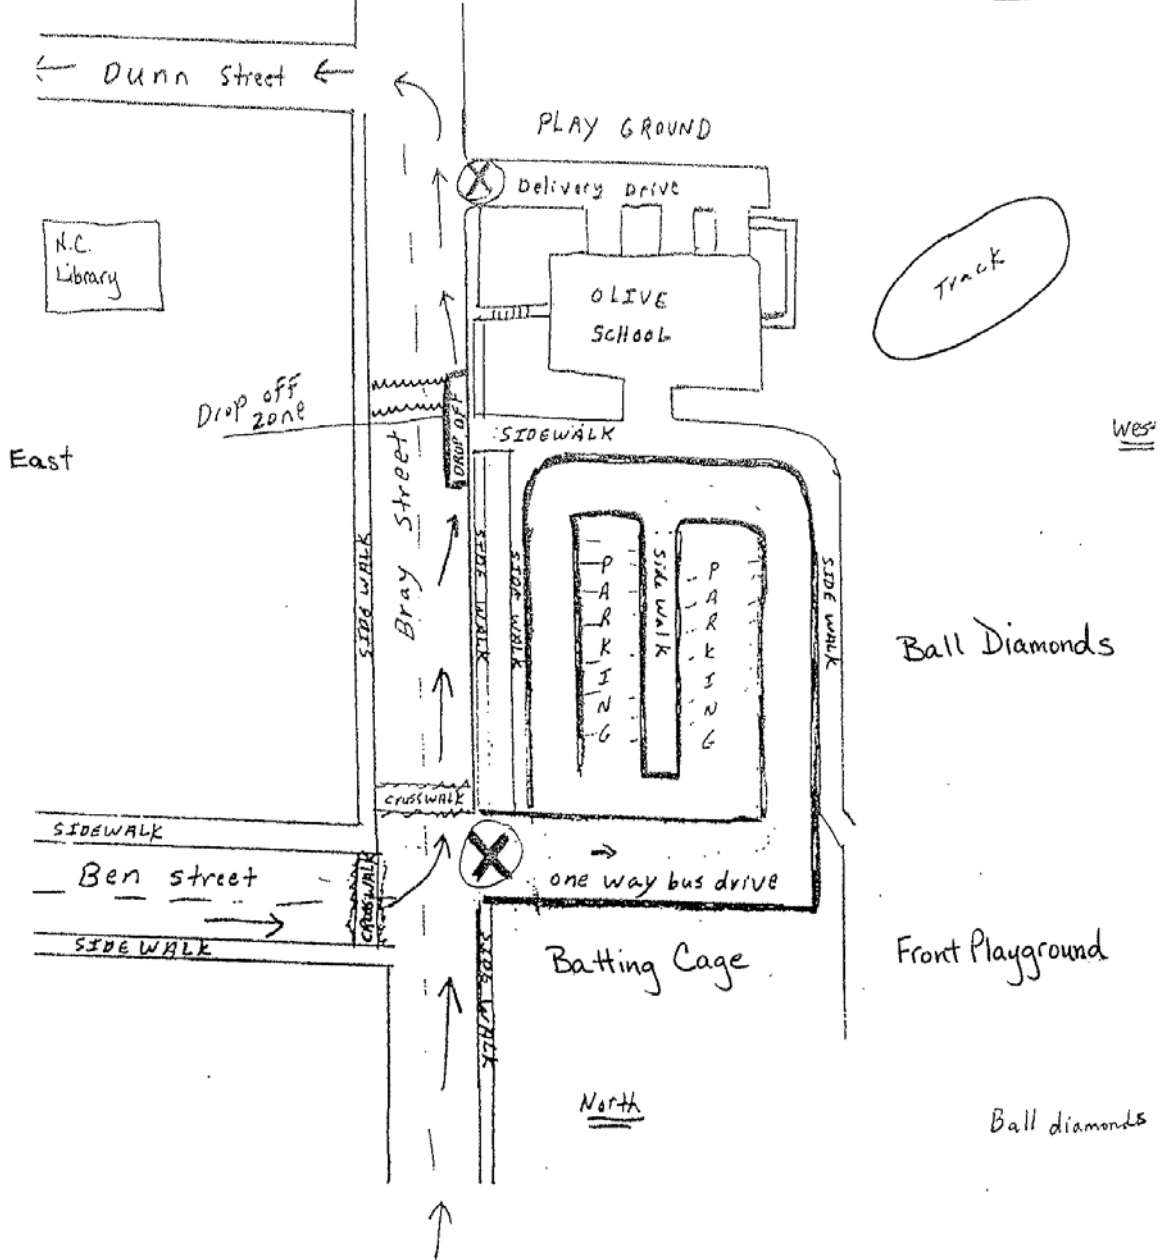 Dunn Street
PLAY GROUND
X
Delivery Drive
N.C.
Library
OLIVE
SCHOOL
Track
Drop off
zone
DROP OFF
SIDEWALK
East
Bray Street
SIDE WALK
SIDE WALK
SIDE WALK
PARKING
Side Walk
PARKING
SIDE WALK
Ball Diamonds
CROSSWALK
SIDEWALK
Ben street
CROSSWALK
SIDE WALK
X
one way bus drive
Batting Cage
Front Playground
SIDE WALK
North
Ball diamonds